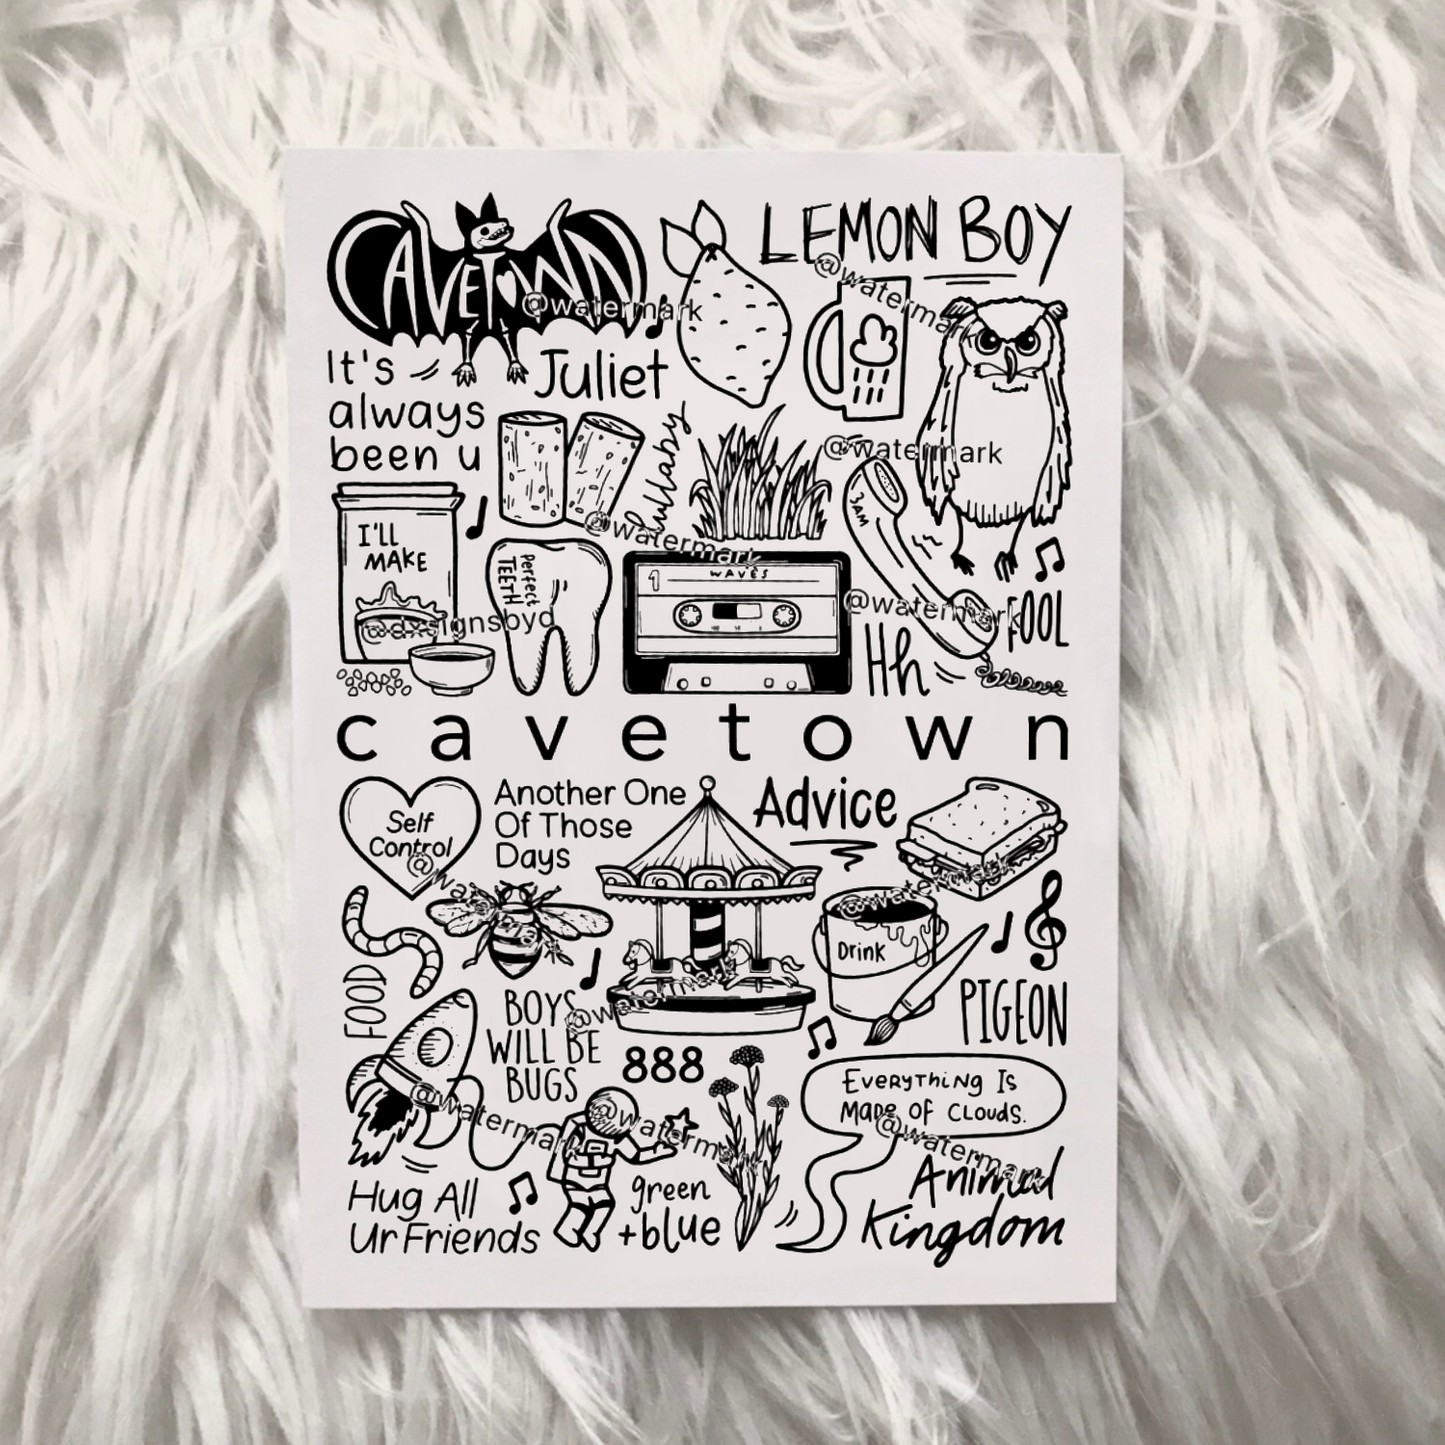 CAVETOWN
LEMON BOY
@watermark
@watermark
It's
always
been u
Juliet
lullaby
@watermark
@watermark
I'LL
MAKE
Perfect
TEETH
1
WAVES
3AM
@watermark
FOOL
@dxsignsbyd
Hh
cavetown
Self
Control
Another One
Of Those
Days
Advice
@watermark
@watermark
Drink
FOOD
PIGEON
BOYS
WILL BE
BUGS
@watermark
888
EVERYTHING IS
MADE OF CLOUDS.
@watermark
@watermark
@watermark
Animal
Kingdom
Hug All
Ur Friends
green
+blue